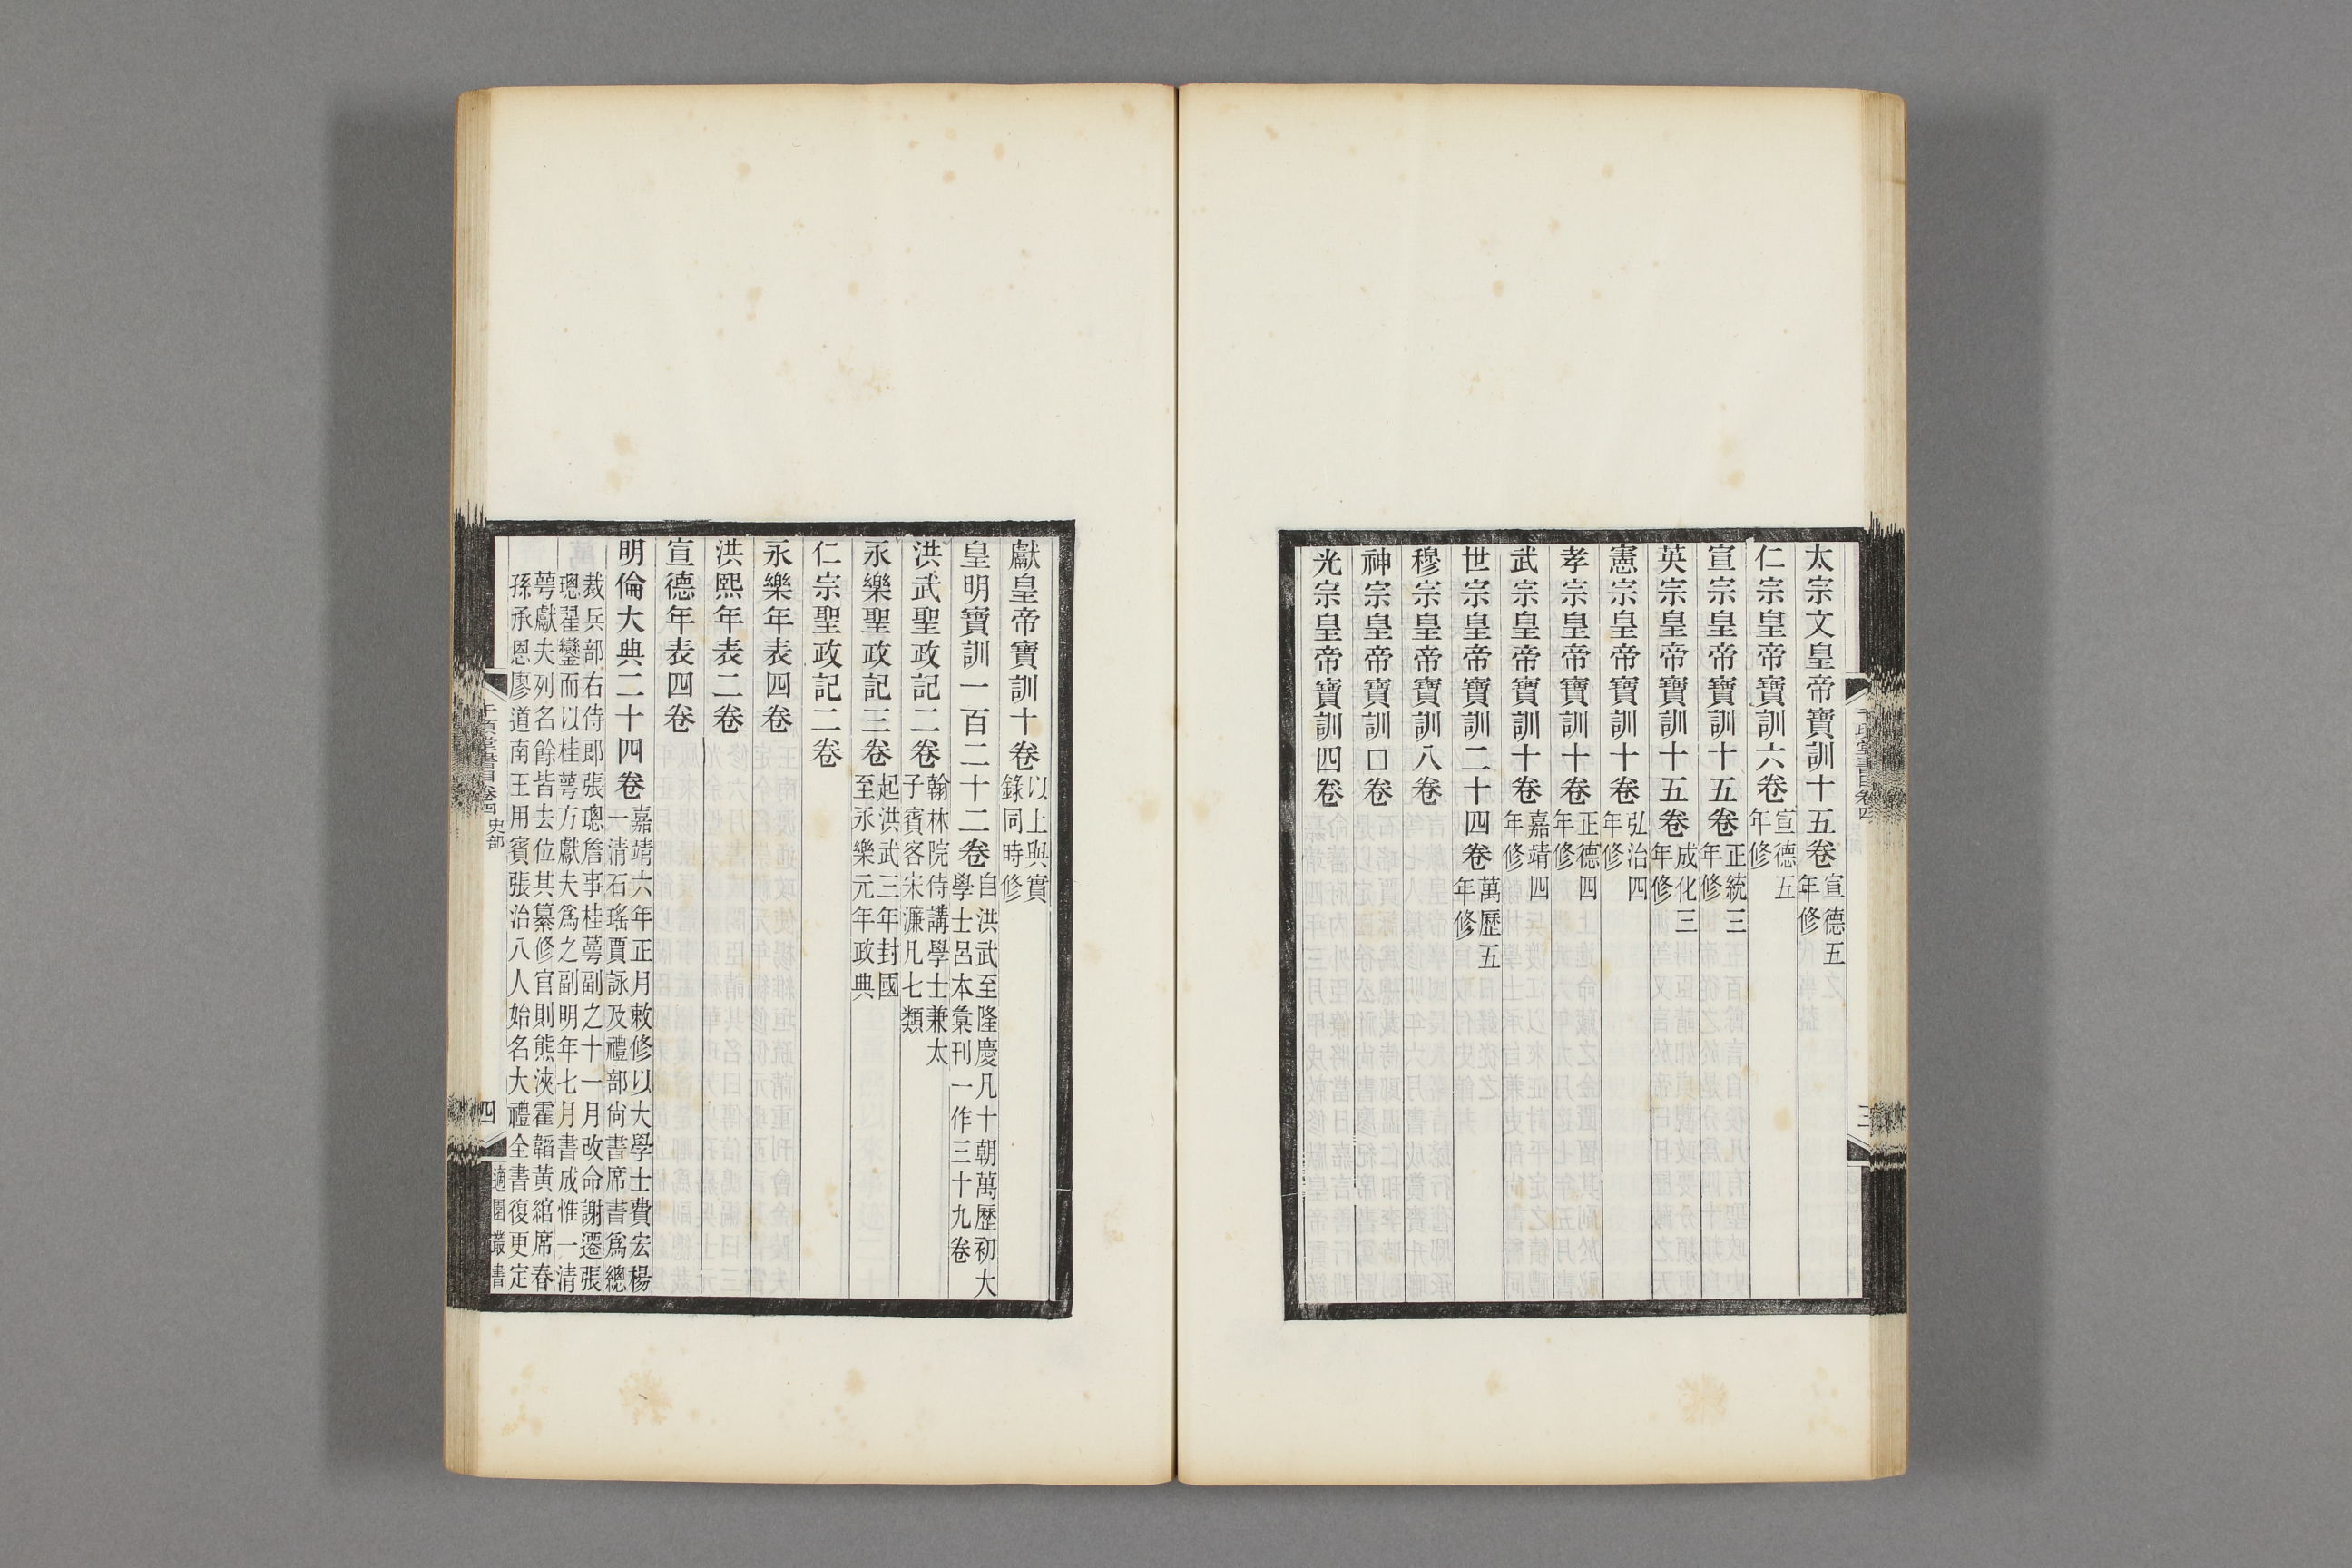 太宗文皇帝寶訓十五卷宣德五年修
仁宗皇帝寶訓六卷宣德五年修
宣宗皇帝寶訓十五卷正統三年修
英宗皇帝寶訓十五卷成化三年修
憲宗皇帝寶訓十卷弘治四年修
孝宗皇帝寶訓十卷正德四年修
武宗皇帝寶訓十卷嘉靖四年修
世宗皇帝寶訓二十四卷萬歷五年修
穆宗皇帝寶訓八卷
神宗皇帝寶訓□卷
光宗皇帝寶訓四卷
獻皇帝寶訓十卷以上與實錄同時修
皇明寶訓一百二十二卷自洪武至隆慶凡十朝萬歷初大學士呂本彙刊一作三十九卷
洪武聖政記二卷翰林院侍講學士兼太子賓客宋濂凡七類
永樂聖政記三卷起洪武三年封國至永樂元年政典
仁宗聖政記二卷
永樂年表四卷
洪熙年表二卷
宣德年表四卷
明倫大典二十四卷嘉靖六年正月敕修以大學士費宏楊一清石瑤賈詠及禮部尚書席書爲總
裁兵部右侍郎張璁詹事桂萼副之十一月改命謝遷張
璁翟鑾而以桂萼方獻夫爲之副明年七月書成惟一清
萼獻夫列名餘皆去位其纂修官則熊浹霍韜黃綰席春
孫承恩廖道南王用賓張治八人始名大禮全書復更定
千頃堂書目卷四 史部
四
適園叢書